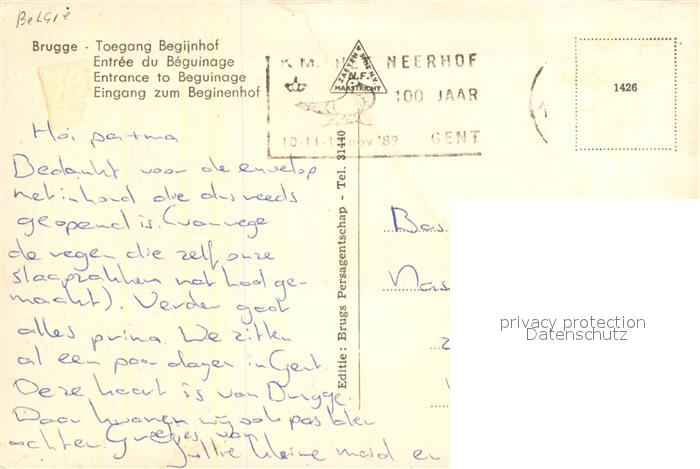 België
Brugge - Toegang Begijnhof
Entrée du Béguinage
Entrance to Beguinage
Eingang zum Beginenhof
K.M. NEERHOF
100 JAAR
10-11-1 nov '89 GENT
ZAETEN N.V.
N.F.
MAASTRICHT
1426
Hoi pa+ma
Bedankt voor de envelop
met inhoud die dus reeds
geopend is. (vanwege
de regen die zelf onze
slaapzakken nat had ge-
maakt). Verder gaat
alles prima. We zitten
al een paar dagen in Gent.
Deze kaart is van Brugge.
Daar kwamen wij ook pas later
achter. Groetjes van
jullie kleine meid en
Editie: Brugs Persagentschap - Tel. 31440
Bas
Nas
privacy protection
Datenschutz